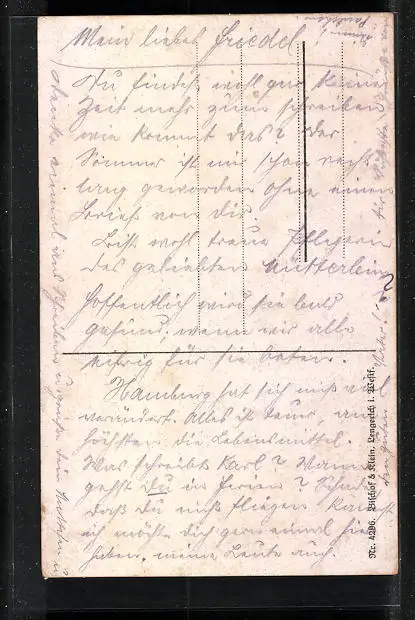 Mein liebes Friedel!
Du findest wohl gar keine
Zeit mehr zum schreiben
wie kommt das? der
Sommer ist mir schon recht
lang geworden ohne einen
Brief von dir.
Bist wohl treue Pflegerin
des geliebten Mütterlein?
Hoffentlich wird sie bald
gesund, wenn wir alle
eifrig für sie beten.
Hamburg hat sich nicht viel
verändert. Alles ist teuer, am
höchsten die Lebensmittel.
Was schreibt Karl? Wann
gehst Du in Ferien? Schade
daß du nicht fliegen kannst
ich möchte dich gern einmal hier
haben, meine Leute auch.
Nr. 4296. Bischof & Klein, Lengerich i. Westf.